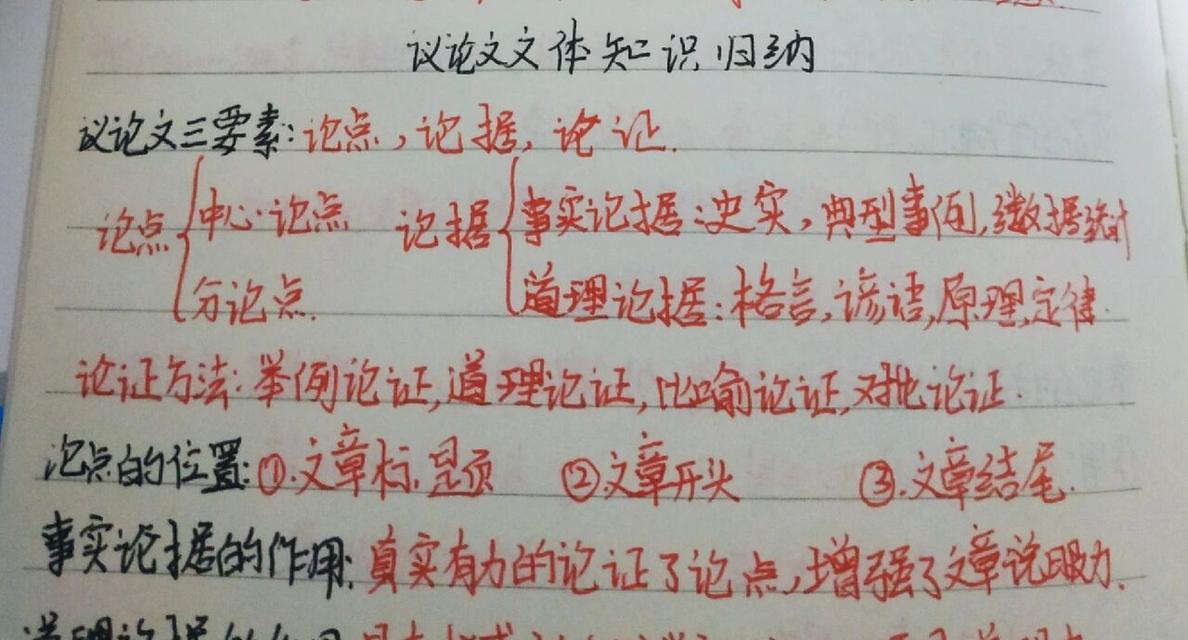 议论文文体知识归纳
议论文三要素:论点,论据,论证.
论点{中心论点 论据{事实论据:史实,典型事例,数据统计
分论点. 道理论据:格言,谚语,原理,定律.
论证方法:举例论证,道理论证,比喻论证,对比论证.
论点的位置:①.文章标题 ②文章开头 ③.文章结尾.
事实论据的作用:真实有力的论证了论点,增强了文章说服力.
道理论据的作用